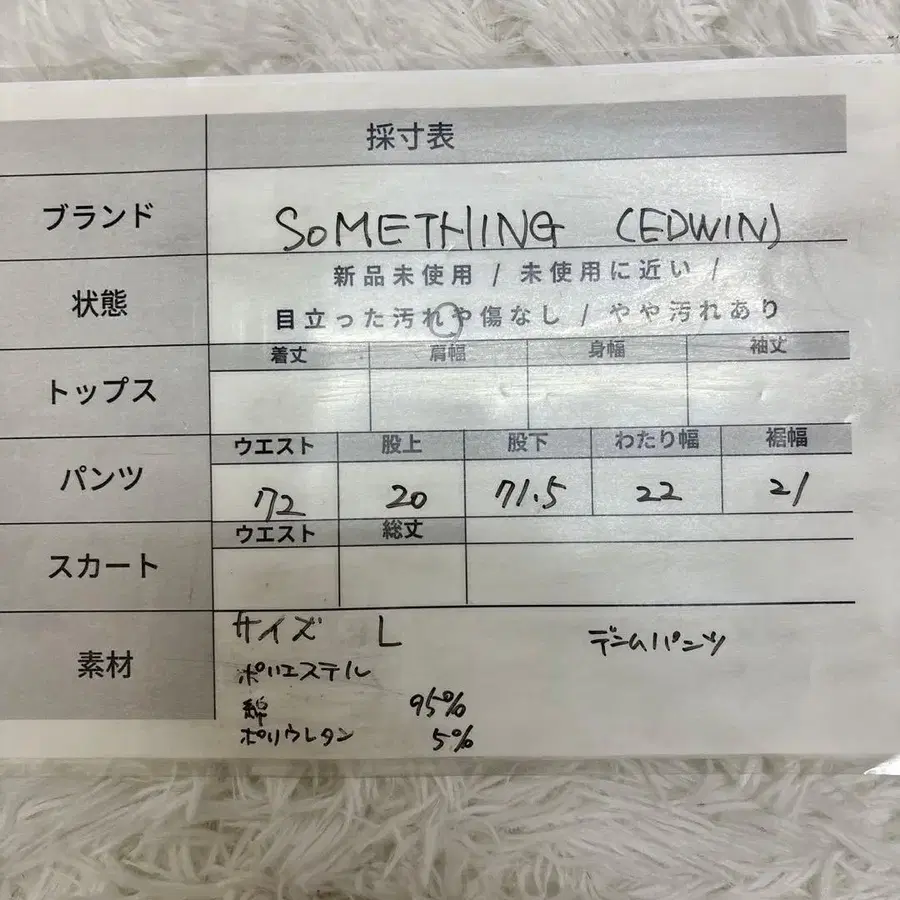 採寸表
ブランド SOMETHING (EDWIN)
状態 新品未使用 / 未使用に近い /
目立った汚れや傷なし / やや汚れあり
着丈 肩幅 身幅 袖丈
トップス
ウエスト 股上 股下 わたり幅 裾幅
パンツ 72 20 71.5 22 21
ウエスト 総丈
スカート
サイズ L デニムパンツ
素材 ポリエステル
綿 95%
ポリウレタン 5%